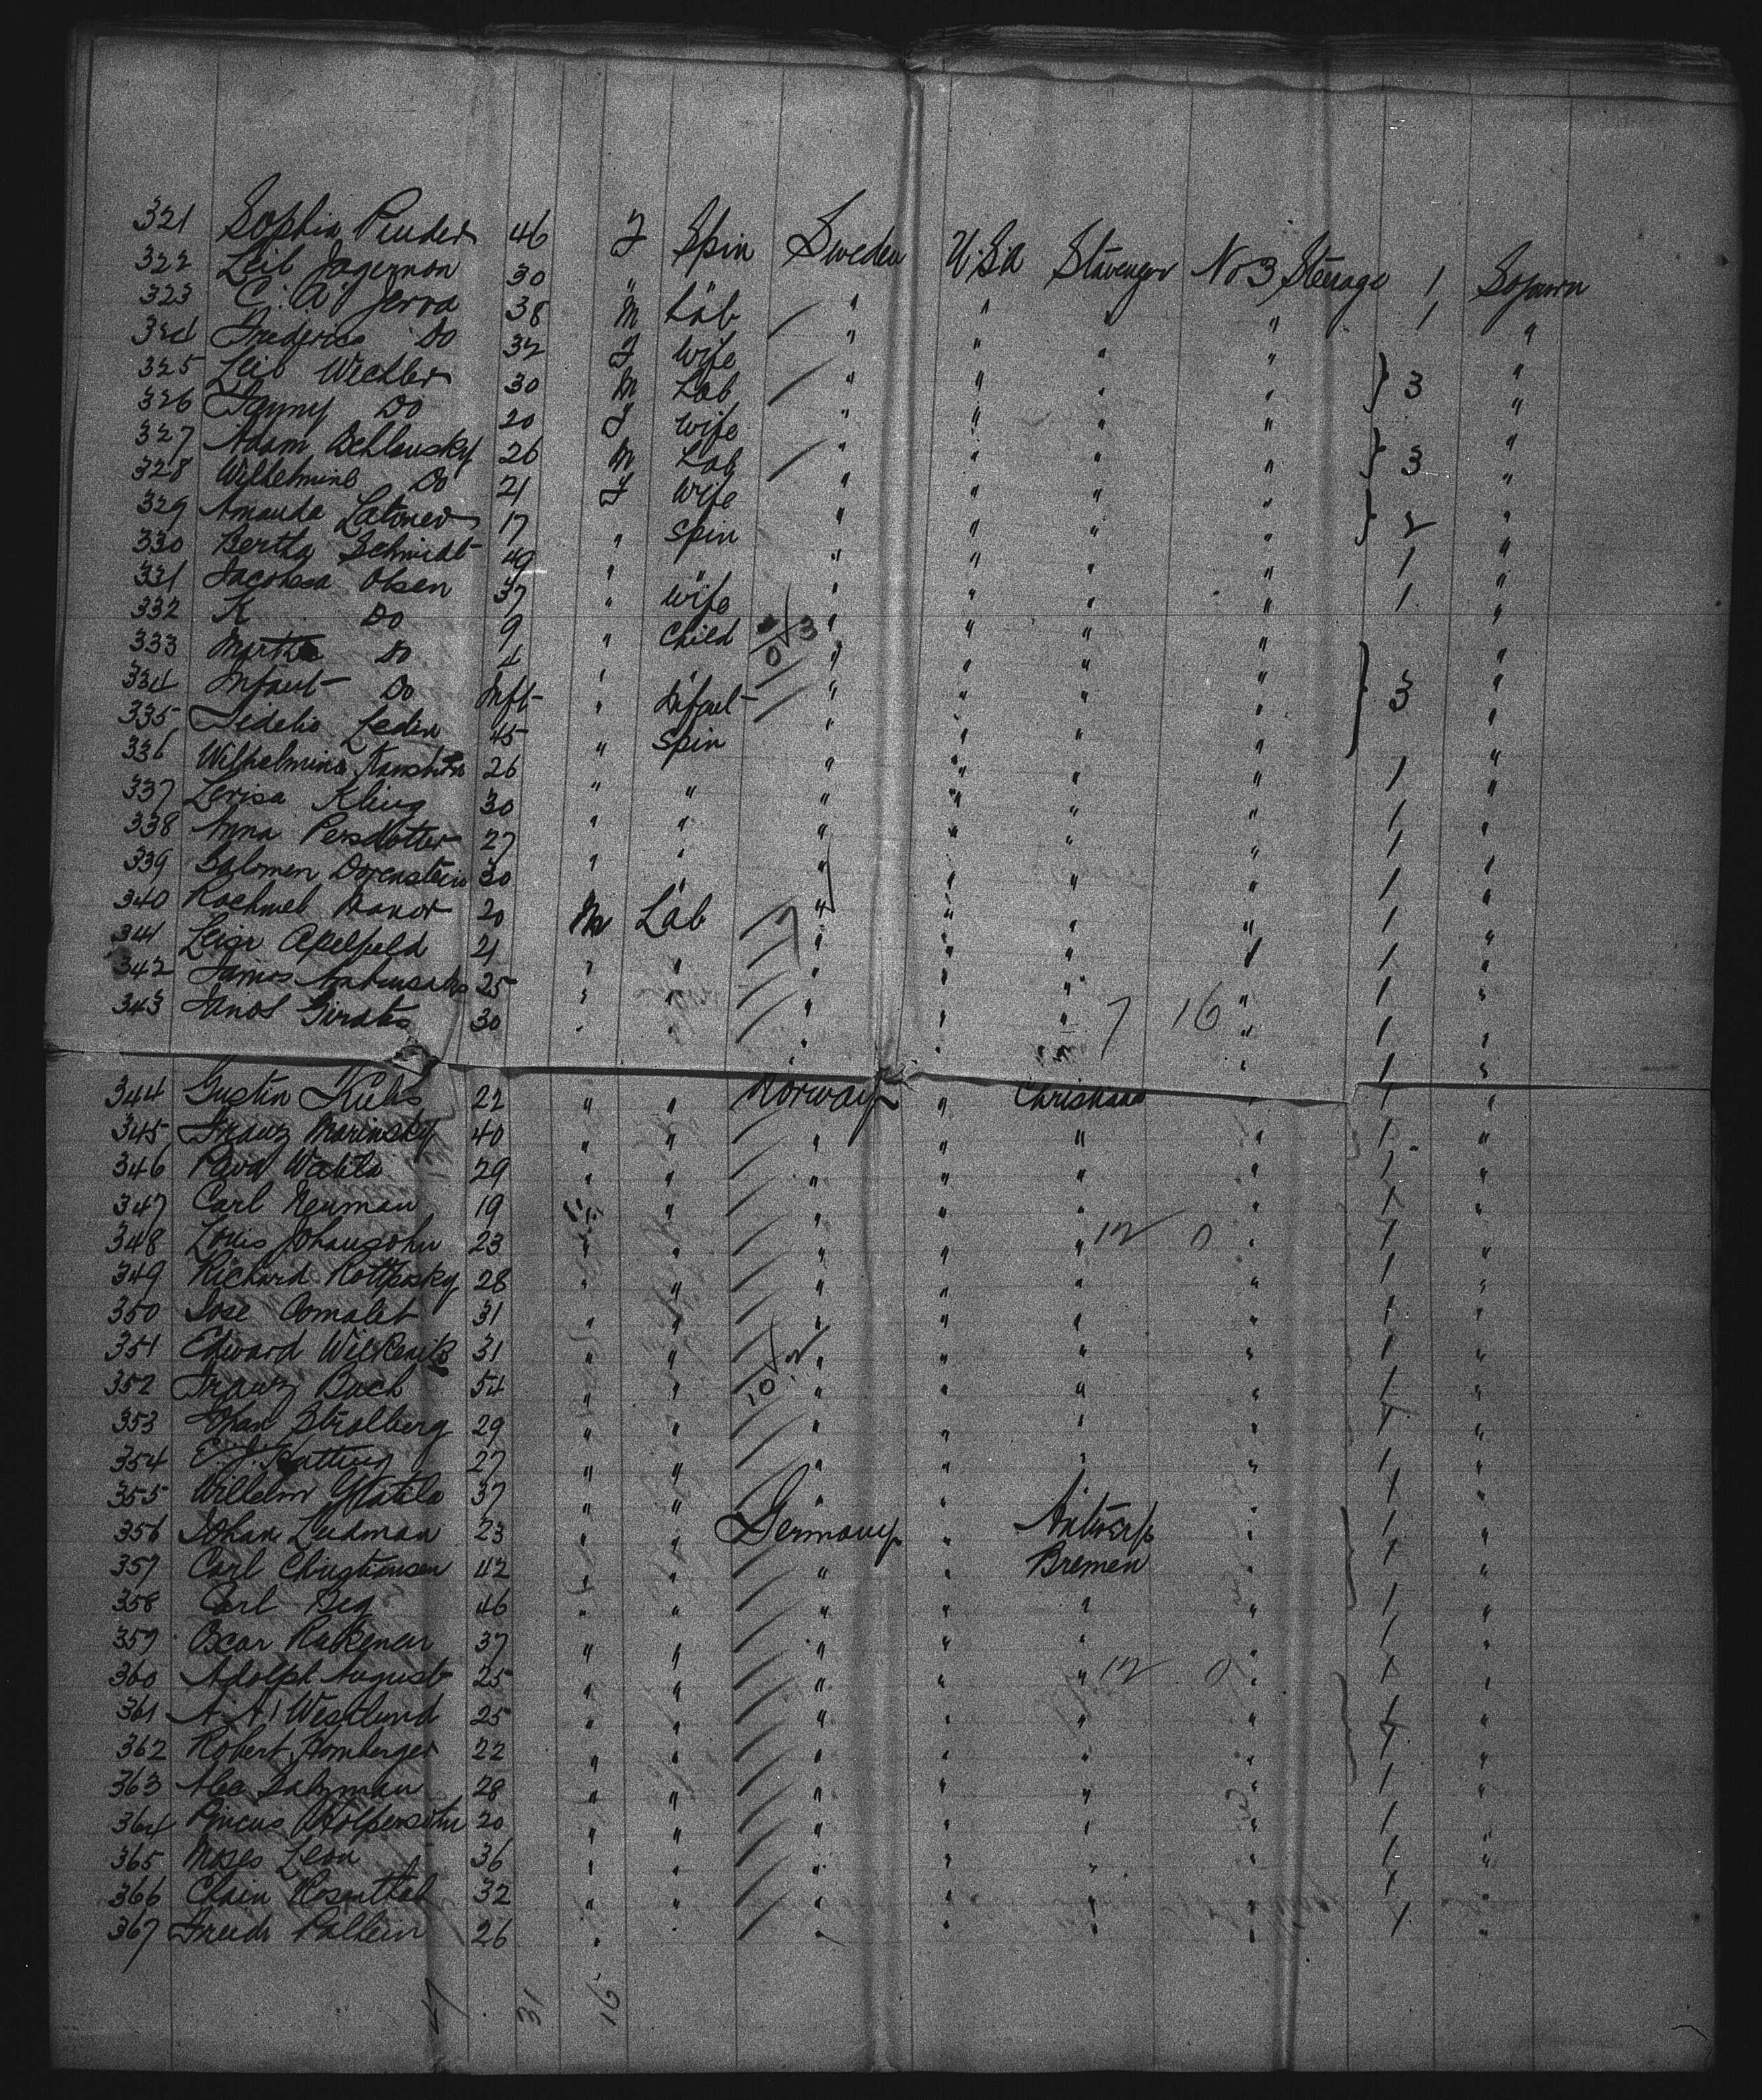 321 Sophia Pinder 46 F Spin Sweden U.S.A Stavenger No 3 Steerage 1 Sojourn
322 Leib Jagermon 30 " " " " " 1 "
323 C. A. Jerra 38 M Lab " " " " "
324 Frederica Do 32 F Wife " " " " "
325 Leib Wechler 30 M Lab " " " " } 3 "
326 Fanny Do 20 F Wife " " " " "
327 Adam Behlausky 26 M Lab " " " " } 3 "
328 Wilhelmine Do 21 F Wife " " " " "
329 Amanda Latoner 17 " Spin " " " " } 2 "
330 Bertha Schmidt 49 " " " " " " 1 "
331 Jacobesa Olsen 37 " Wife " " " " 1 "
332 K Do 9 " Child " " " " "
333 Martha Do 4 " " " " " " "
334 Infant Do Inft " Infant " " " " } 3 "
335 Fidelio Leden 45 " Spin " " " " "
336 Wilhelmine 26 " " " " " " 1 "
337 Lerisa Kling 30 " " " " " " 1 "
338 Anna Persdotter 27 " " " " " " 1 "
339 Salomen Dorenstein 30 " " " " " " 1 "
340 Rachmel 20 M Lab " " " " 1 "
341 Leior Apelfeld 21 " " " " " " 1 "
342 25 " " " " " " 1 "
343 Janos Giratis 30 " " " " " 7 16 " 1 "
344 Gustin Kuhs 22 " " Norway " Christiana " 1 "
345 Franz Marinsky 40 " " " " " " 1 "
346 Pava Wahila 29 " " " " " " 1 "
347 Carl Neuman 19 " " " " " " 1 "
348 Louis Johansohn 23 " " " " " 12 0 " 1 "
349 Richard Rottensky 28 " " " " " " 1 "
350 Jose Comalet 31 " " " " " " 1 "
351 Edward Wilkenits 31 " " " " " " 1 "
352 Franz Bach 54 " " " " " " 1 "
353 Johan Stralberg 29 " " " " " " 1 "
354 E. J. Katting 27 " " " " " " 1 "
355 Wilhelm 37 " " " " 1 "
356 Johan Ludman 23 " " Germany " Antwerp " 1 "
357 Carl Christiansen 42 " " " " Bremen " 1 "
358 Carl Beg 46 " " " " " " 1 "
359 Oscar Rakenen 37 " " " " " " 1 "
360 Adolph August 25 " " " " " 12 0 " 1 "
361 A. A. Westlund 25 " " " " " " 1 "
362 Robert Homberger 22 " " " " " " 1 "
363 Abe Salzman 28 " " " " " " 1 "
364 Pincus Wolfensohn 20 " " " " " " 1 "
365 Moses Leon 36 " " " " " " 1 "
366 Chain Rosenthal 32 " " " " " " 1 "
367 26 " " " " " 1 "
47 31 16